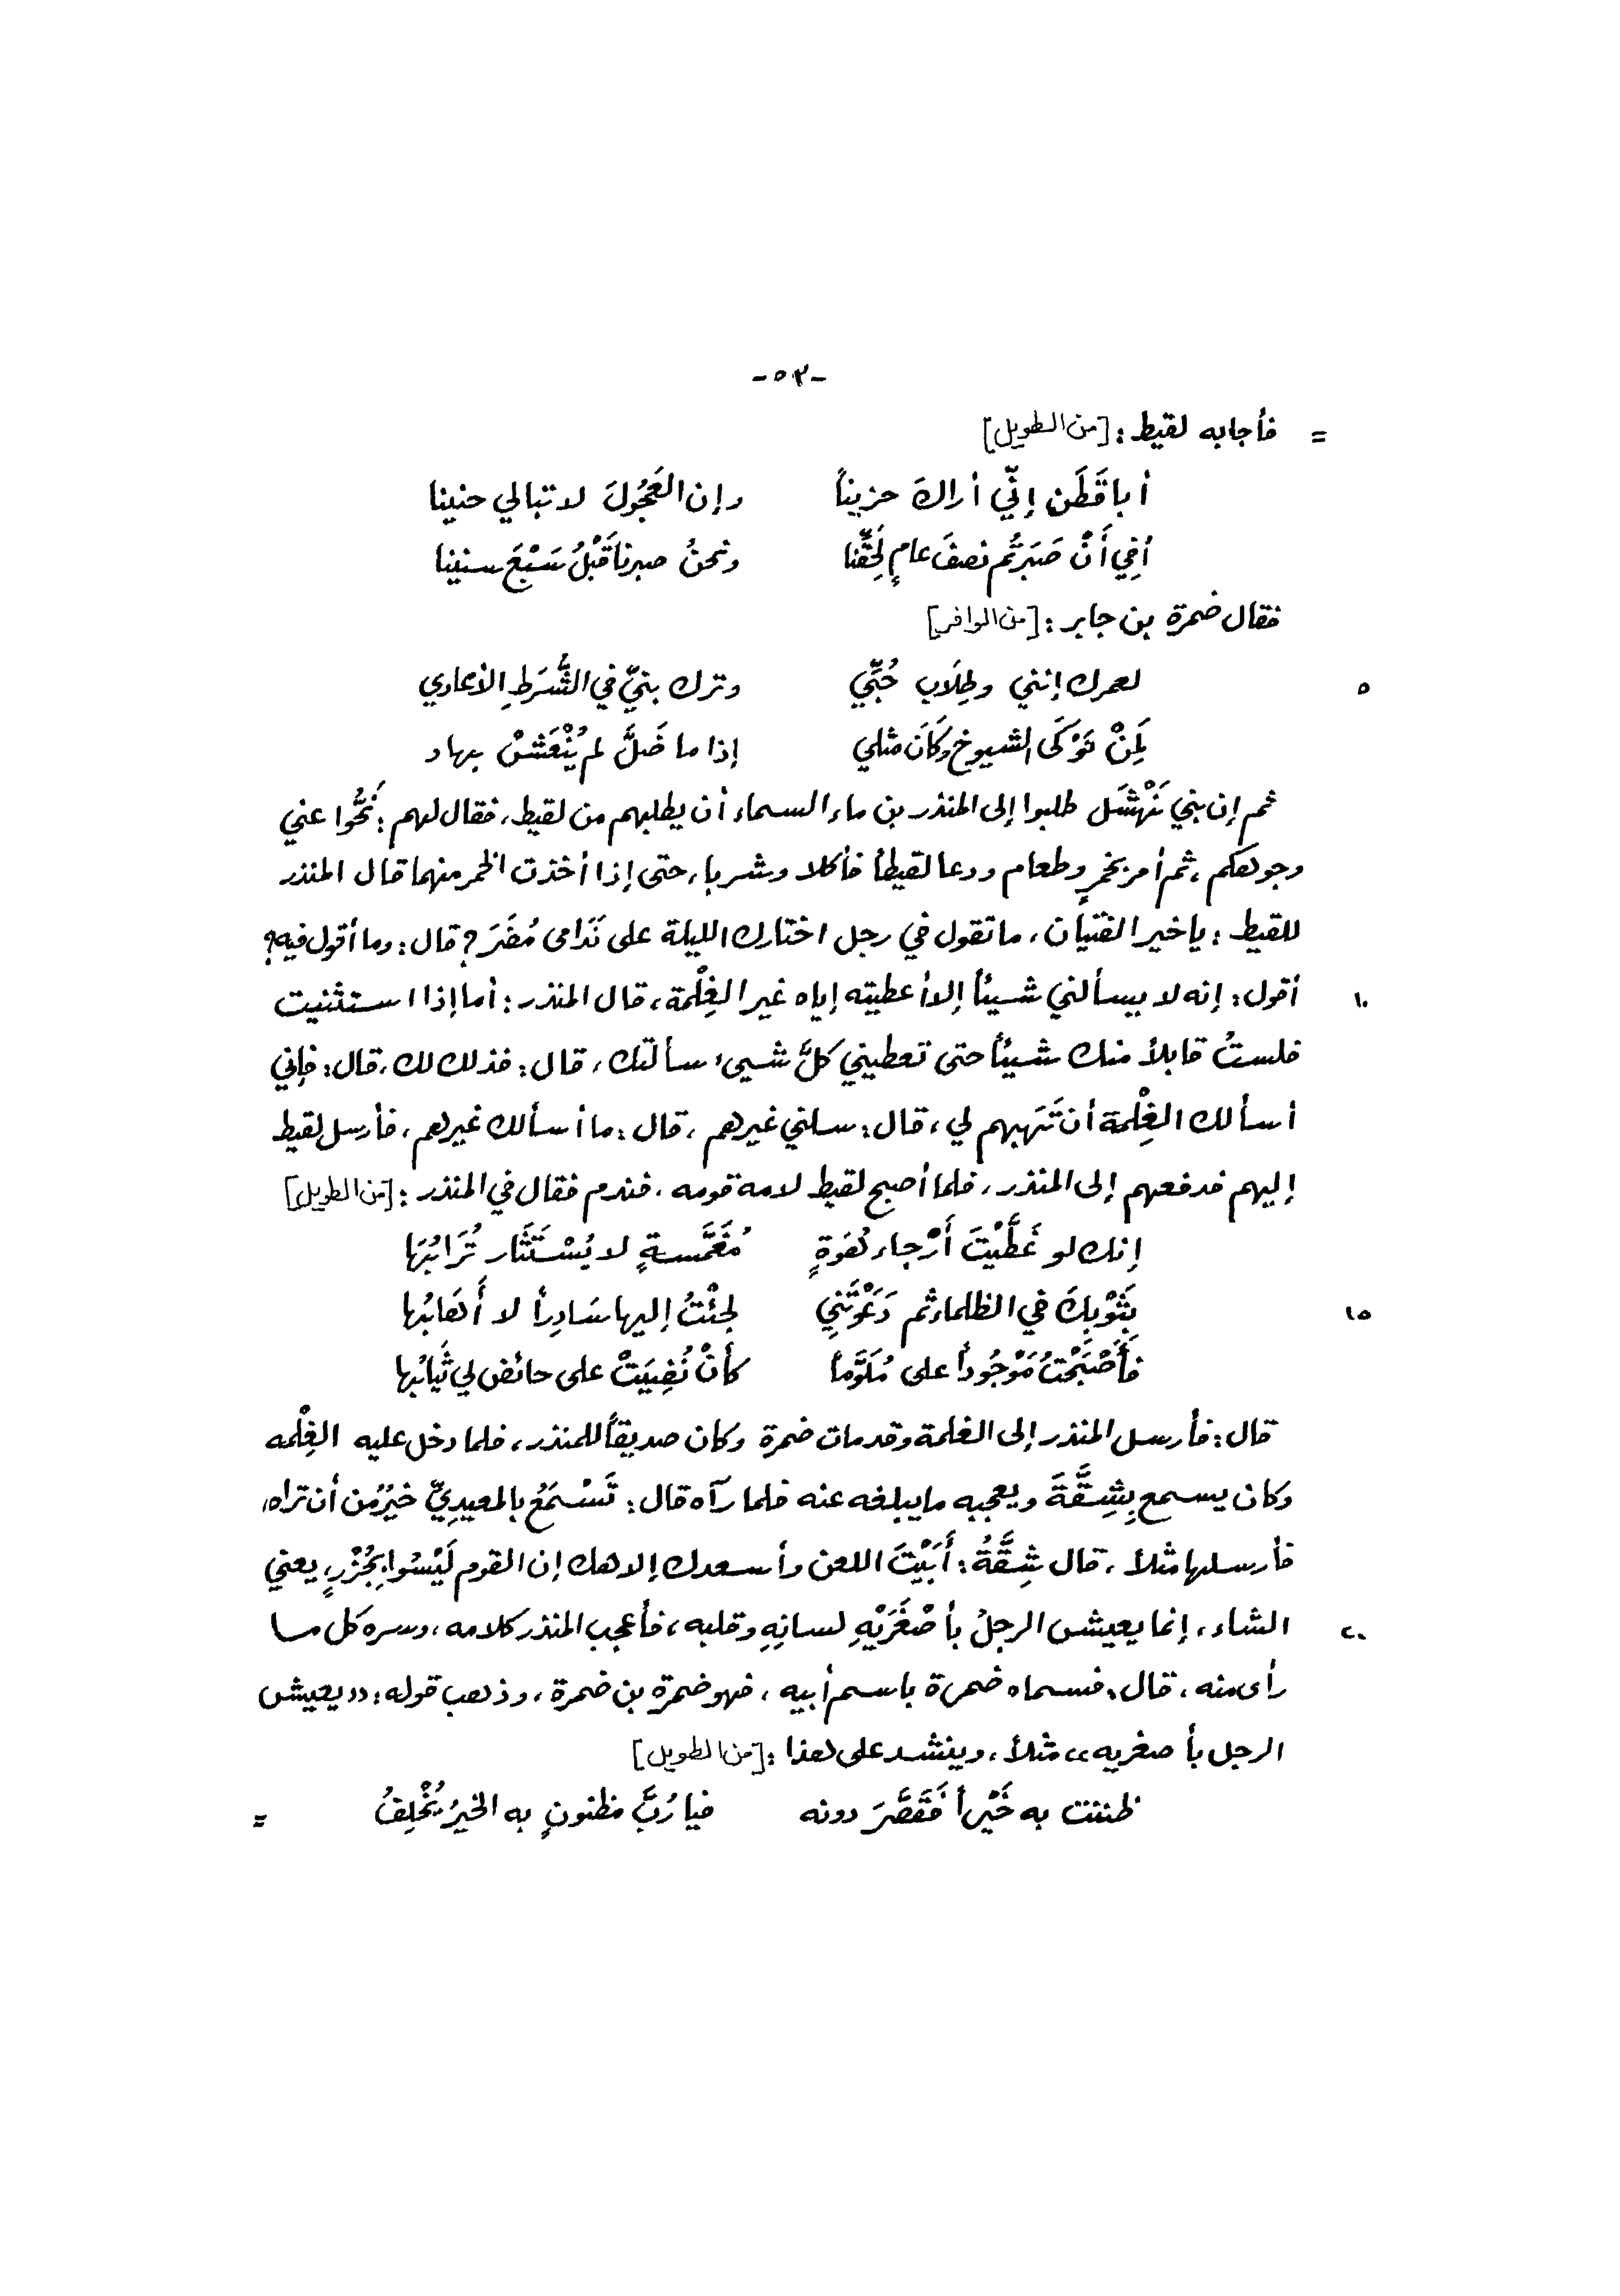 -٥٢-
= فأجابه لقيط : [من الطويل]
أبا قَطَن إنّي أراكَ حزيناً وإن العَجُولَ لا تبالي حنينا
أفِي أَنْ صَبَرتُم نصفَ عامٍ لِحَقِّنا ونحنُ صبرنا قَبْلُ سَبْعَ سنينا
فقال ضمرة بن جابر : [من الوافر]
٥ لعمرك إنني وطِلَاب حُبِّي وترك بنيّ في الشُّرَطِ الأعادي
لَمِنْ نَوْكَى الشيوخ وكَانَ مثلي إذا ما ضَلَّ لم يُنْعَشْ بهاد
ثم إن بني نَهْشَل طلبوا إلى المنذر بن ماء السماء أن يطلبهم من لقيط، فقال لهم : نَحُّوا عني
وجوهكم ، ثم أمر بخمرٍ وطعام ودعا لقيطاً فأكلا وشربا، حتى إذا أخذت الخمر منهما قال المنذر
للقيط : يا خير الفتيان ، ما تقول في رجل اختارك الليلة على نَدَامى مُضَرَ ؟ قال : وما أقول فيه؟
١٠ أقول : إنه لا يسألني شيئاً إلا أعطيته إياه غير الغِلْمة ، قال المنذر : أما إذا استثنيت
فلستُ قابلاً منك شيئاً حتى تعطيني كلَّ شيىء سألتك ، قال : فذلك لك ، قال : فإني
أسألك الغِلْمة أن تَهَبهم لي ، قال : سلني غيرهم ، قال : ما أسألك غيرهم ، فأرسل لقيط
إليهم فدفعهم إلى المنذر ، فلما أصبح لقيط لامه قومه ، فندم فقال في المنذر : [من الطويل]
إنك لو غَطَّيْتَ أَرْجاء هُوَةٍ مُغَمَّسةٍ لا يُسْتَثَار تُرَابُهَا
١٥ بِثَوْبِكَ في الظلماء ثم دَعَوْتَنِي لجئْتُ إليها سَادِراً لا أَهَابُها
فَأَصْبَحْتُ مَوْجُوداً على مُلَوَّماً كأنْ نُضِيَتْ على حائض لي ثِيَابُها
قال : فأرسل المنذر إلى الغلمة وقد مات ضمرة وكان صديقاً للمنذر ، فلما دخل عليه الغِلْمه
وكان يسمع بِشِقَّةَ ويعجبه ما يبلغه عنه فلما رآه قال : تَسْمَعُ بالمعيدِيّ خيرٌ من أن تراه،
فأرسلها مثلاً ، قال شِقَّةُ : أَبَيْتَ اللعن وأسعدك إلاهك إن القوم لَيْسُوا بِجُزْرٍ ، يعني
٢٠ الشاء ، إنما يعيش الرجلُ بأصْغَرَيْهِ لسانِهِ وقلبه ، فأعجب المنذر كلامه ، وسره كل مــا
رأى منه ، قال : فسماه ضمرة باسم أبيه ، فهو ضمرة بن ضمرة ، وذهب قوله : «يعيش
الرجل بأصغريه» مثلاً ، وينشد على هذا : [من الطويل]
ظننت به خَيْراً فَقَصَّرَ دونه فيا رُبَّ مظنونٍ به الخيرُ يُخْلِفُ =